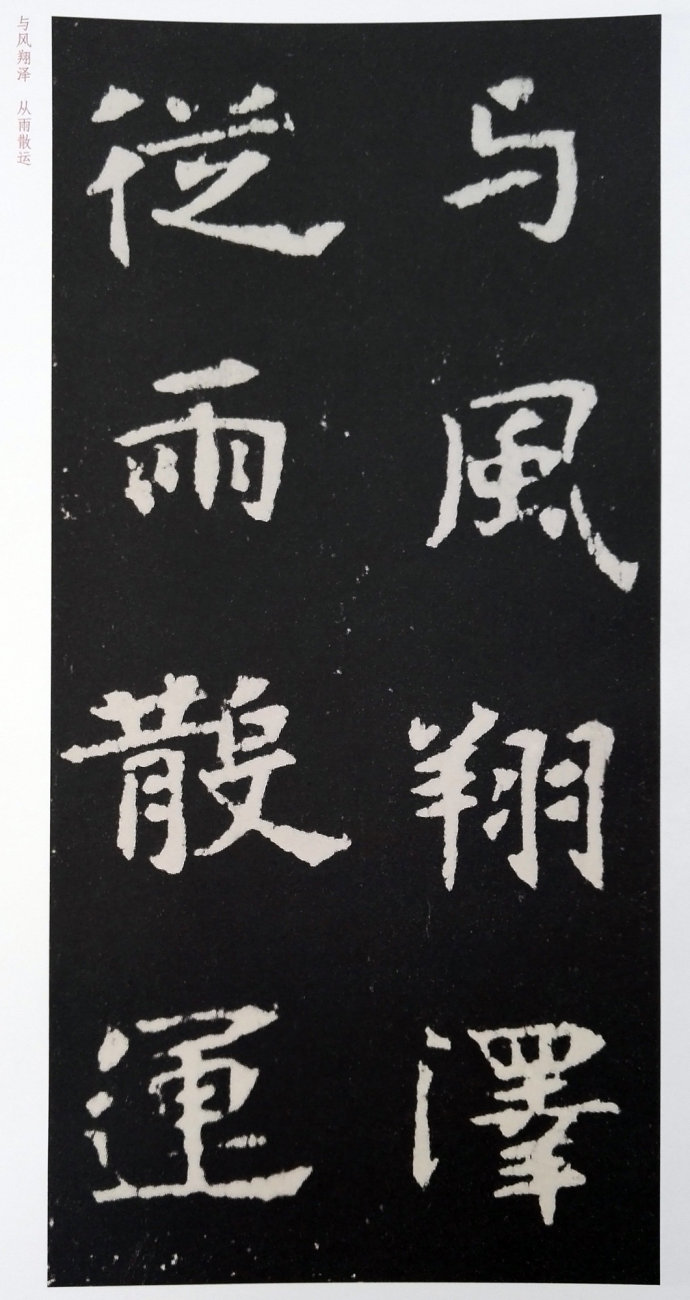 与风翔泽 从雨散运
与風翔澤
從雨散運